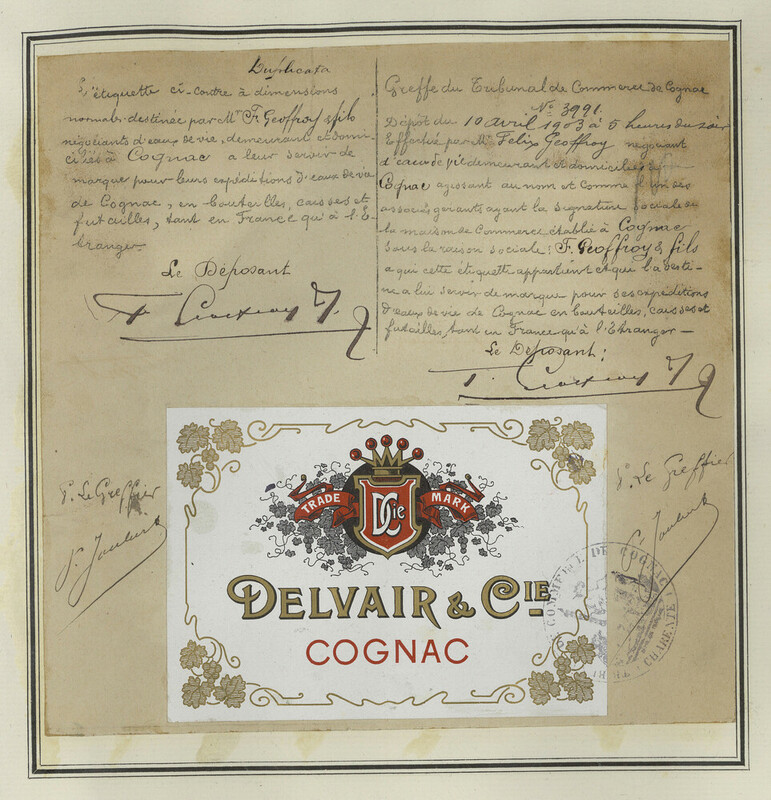 Duplicata
L'étiquette ci-contre à dimensions
normales destinée par Mr F. Geoffroy & fils
négociants d'eaux de vie, demeurant et domi-
ciliés à Cognac a leur servir de
marque pour leurs expéditions d'eaux de vie
de Cognac, en bouteilles, caisses et
futailles, tant en France qu'à l'E-
tranger.
Le Déposant
Greffe du Tribunal de Commerce de Cognac
No 3991.
Dépôt du 10 avril 1903 à 5 heures du soir
Effectué par Mr Felix Geoffroy négociant
d'eau de vie demeurant et domicilié à
Cognac agissant au nom et comme l'un des
associés gérants ayant la signature sociale de
la maison de Commerce établie à Cognac
sous la raison sociale: F. Geoffroy & fils
a qui cette étiquette appartient et qui l'a desti-
né a lui servir de marque pour ses expéditions
d'eaux de vie de Cognac en bouteilles, caisses et
futailles, tant en France qu'à l'Etranger —
Le Déposant:
Pr Le Greffier
Pr Le Greffier
TRADE MARK
DCie
DELVAIR & CIE
COGNAC
COMMERCE DE COGNAC
CHARENTE